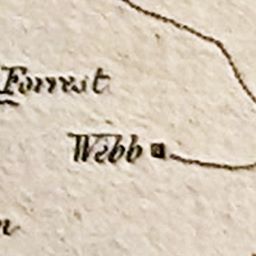 Forrest
Webb